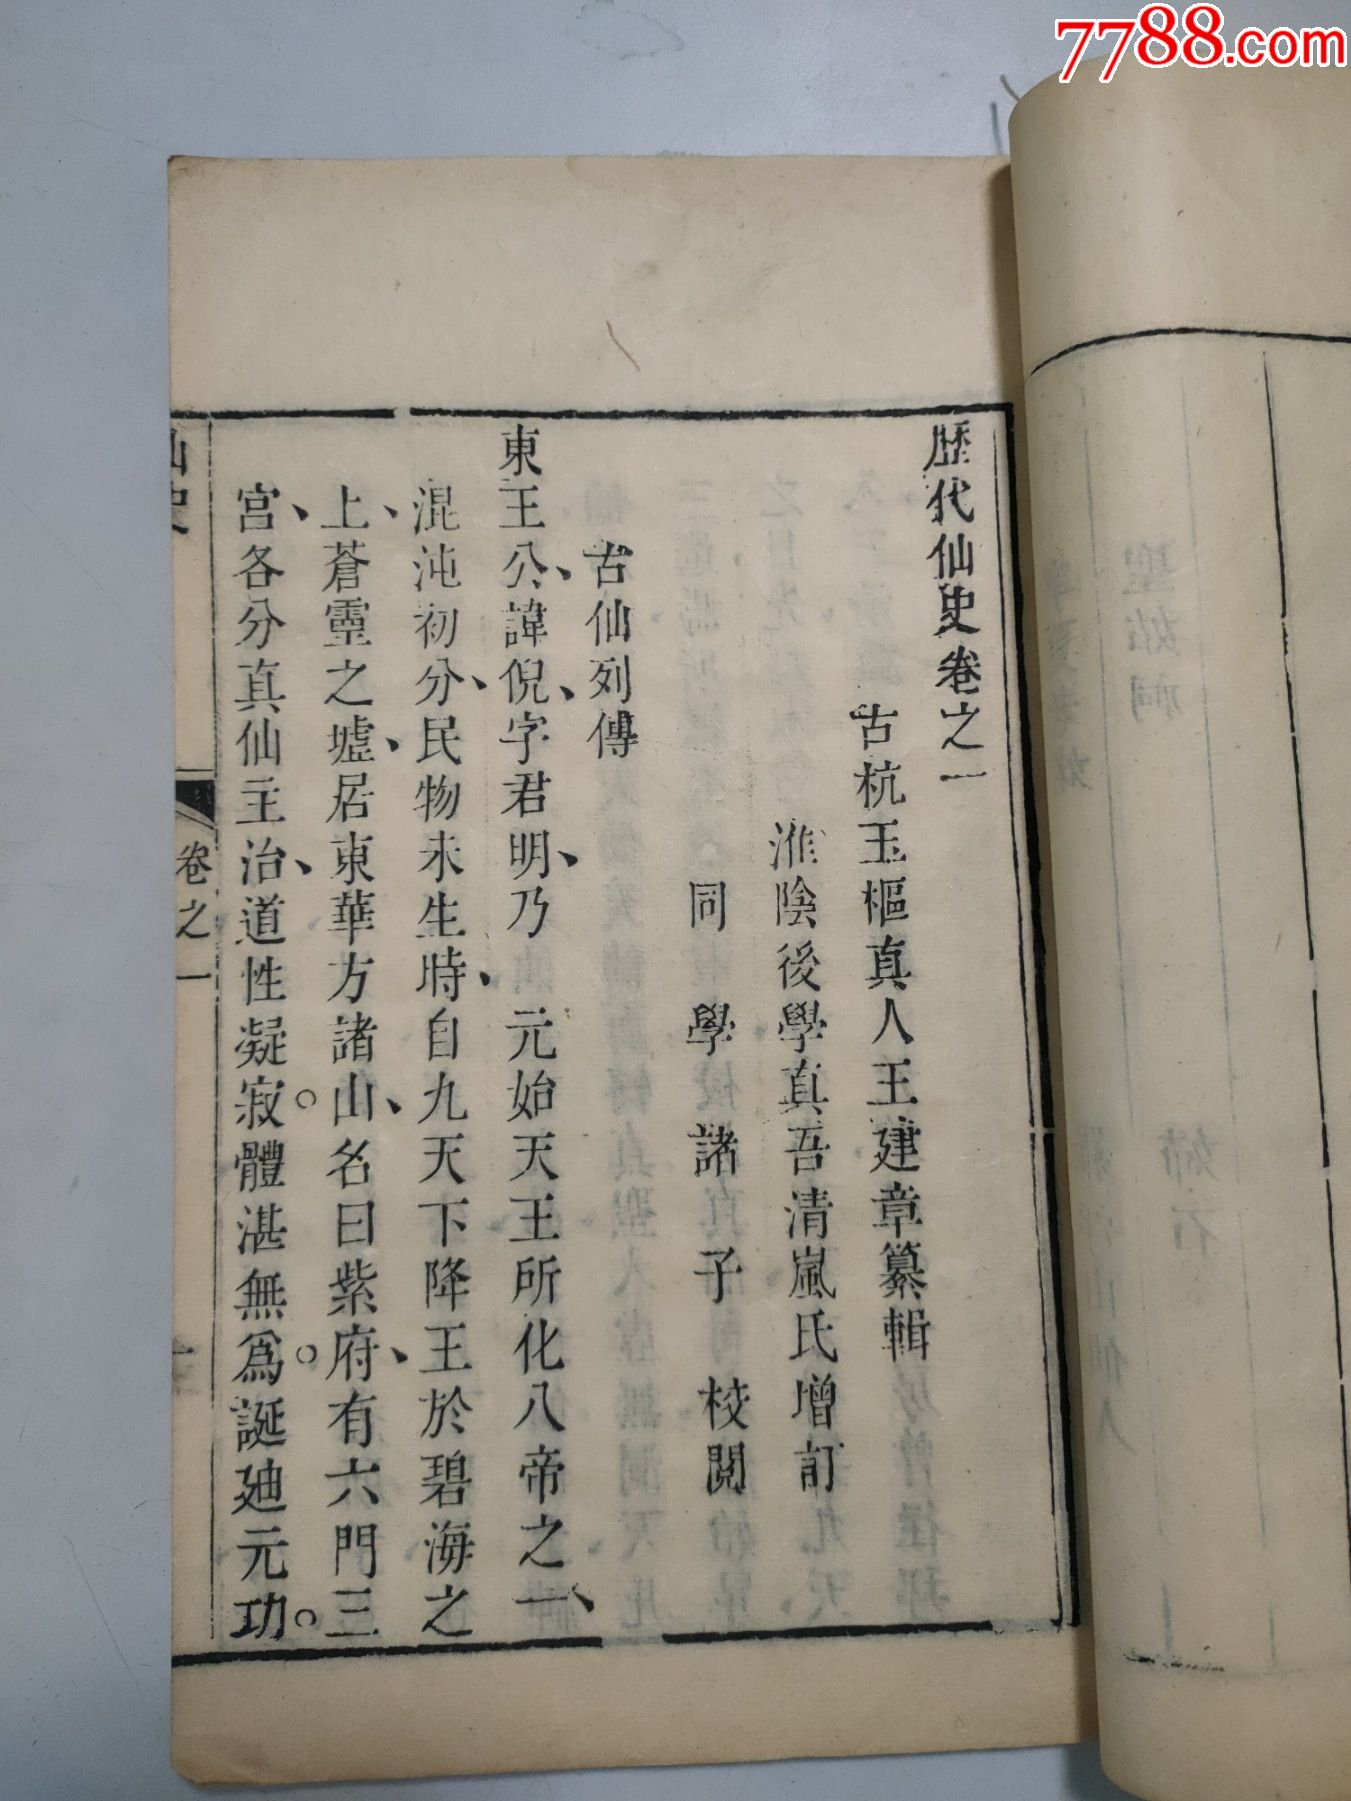 7788.com
歷代仙史卷之一
古杭玉樞真人王建章纂輯
淮陰後學真吾清嵐氏增訂
同學諸子校閱
古仙列傳
東王公、諱倪、字君明、乃元始天王所化八帝之一、
混沌初分、民物未生時、自九天下降王於碧海之
上、蒼靈之墟、居東華方諸山、名曰紫府、有六門三
宮、各分真仙主治、道性凝寂。體湛無爲。誕迪元功。
仙史
卷之一